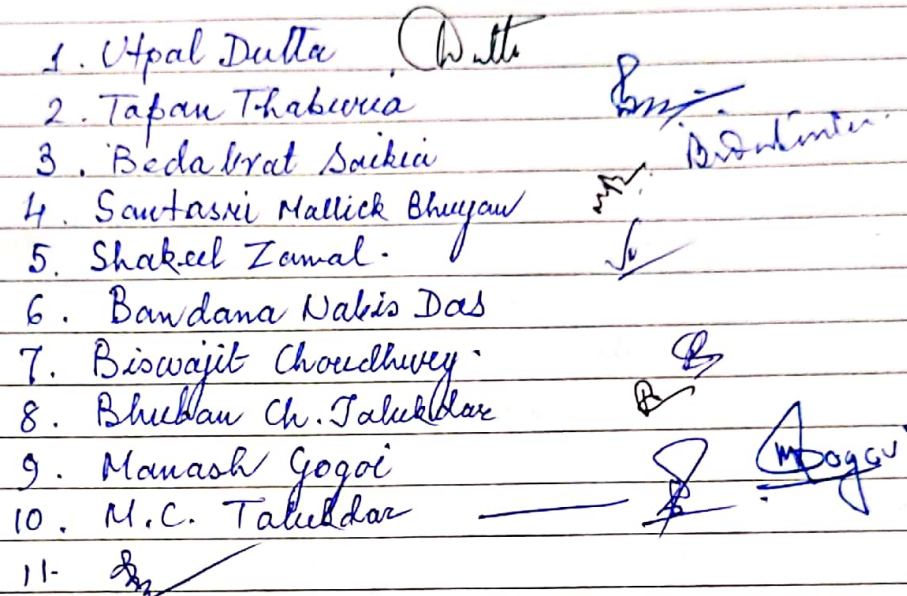 1. Utpal Dutta Dutta
2. Tapan Thakuria
3. Bedabrat Saikia
4. Santasri Mallick Bhuyan
5. Shakeel Zamal.
6. Bandana Nabis Das
7. Biswajit Choudhury.
8. Bhuban Ch. Talukdar
9. Manash Gogoi MGogoi
10. M.C. Talukdar
11-